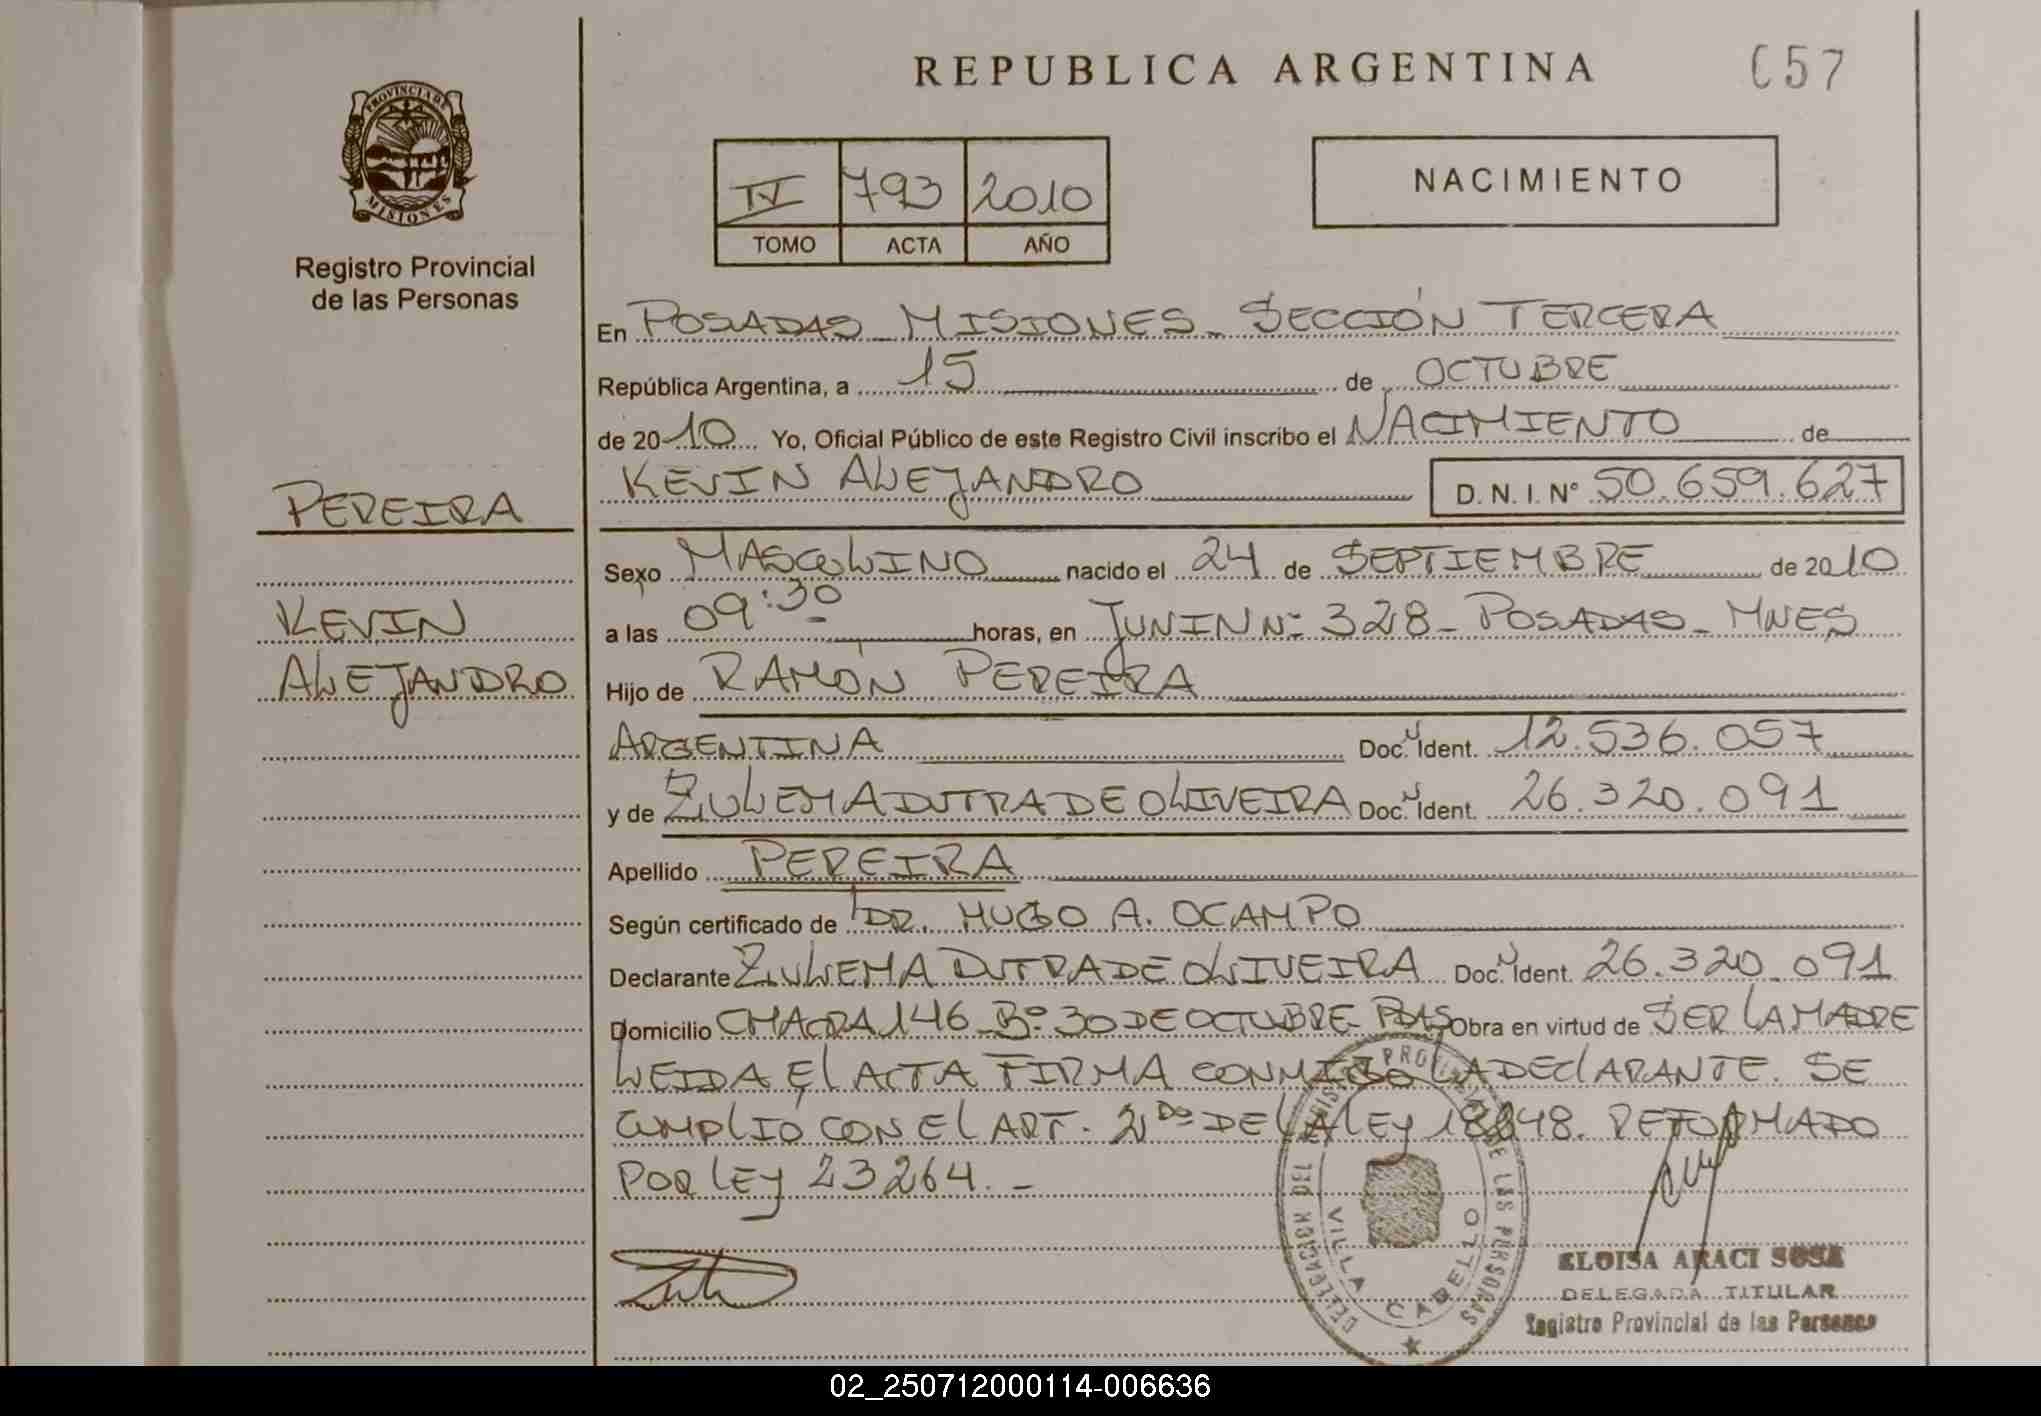 REPUBLICA ARGENTINA
C57
PROVINCIA DE
MISIONES
Registro Provincial
de las Personas
IV 793 2010
TOMO ACTA AÑO
NACIMIENTO
En POSADAS - MISIONES - SECCIÓN TERCERA
República Argentina, a 15 de OCTUBRE
de 2010 Yo, Oficial Público de este Registro Civil inscribo el NACIMIENTO de
KEVIN ALEJANDRO D. N. I. Nº 50.659.627
PEREIRA
KEVIN
ALEJANDRO
Sexo MASCULINO nacido el 24 de SEPTIEMBRE de 2010
a las 09:30 horas, en JUNIN Nº 328 - POSADAS - MNES
Hijo de RAMÓN PEREIRA
ARGENTINA Doc. Ident. 12.536.057
y de ZULEMA DUTRA DE OLIVEIRA Doc. Ident. 26.320.091
Apellido PEREIRA
Según certificado de DR. HUGO A. OCAMPO
Declarante ZULEMA DUTRA DE OLIVEIRA Doc. Ident. 26.320.091
Domicilio CHACRA 146 Bº 30 DE OCTUBRE - PDAS Obra en virtud de SER LA MADRE
LEIDA EL ACTA FIRMA CONMIGO LA DECLARANTE. SE
CUMPLIÓ CON EL ART. 2do DE LA LEY 18248. REFORMADO
POR LEY 23264. -
DELEGACION DEL REGISTRO PROVINCIAL DE LAS PERSONAS
VILLA CABELLO
ELOISA ARACI SOSA
DELEGADA TITULAR
Registro Provincial de las Personas
02_250712000114-006636